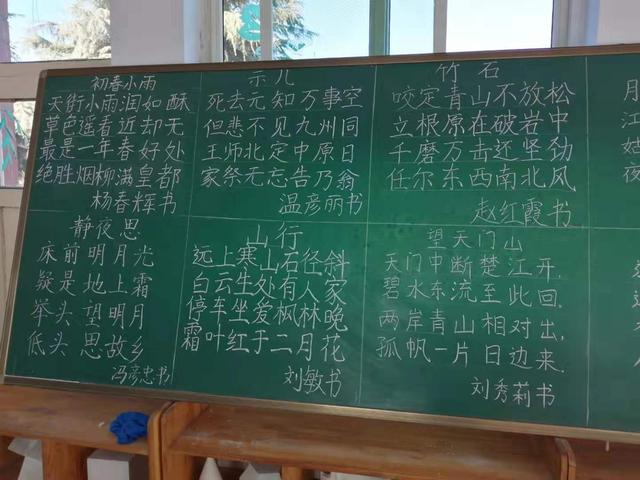 初春小雨
天街小雨润如酥
草色遥看近却无
最是一年春好处
绝胜烟柳满皇都
杨春辉书
示儿
死去元知万事空
但悲不见九州同
王师北定中原日
家祭无忘告乃翁
温彦丽书
竹石
咬定青山不放松
立根原在破岩中
千磨万击还坚劲
任尔东西南北风
赵红霞书
静夜思
床前明月光
疑是地上霜
举头望明月
低头思故乡
冯彦忠书
山行
远上寒山石径斜
白云生处有人家
停车坐爱枫林晚
霜叶红于二月花
刘敏书
望天门山
天门中断楚江开.
碧水东流至此回.
两岸青山相对出,
孤帆一片日边来.
刘秀莉书
月
江
夜